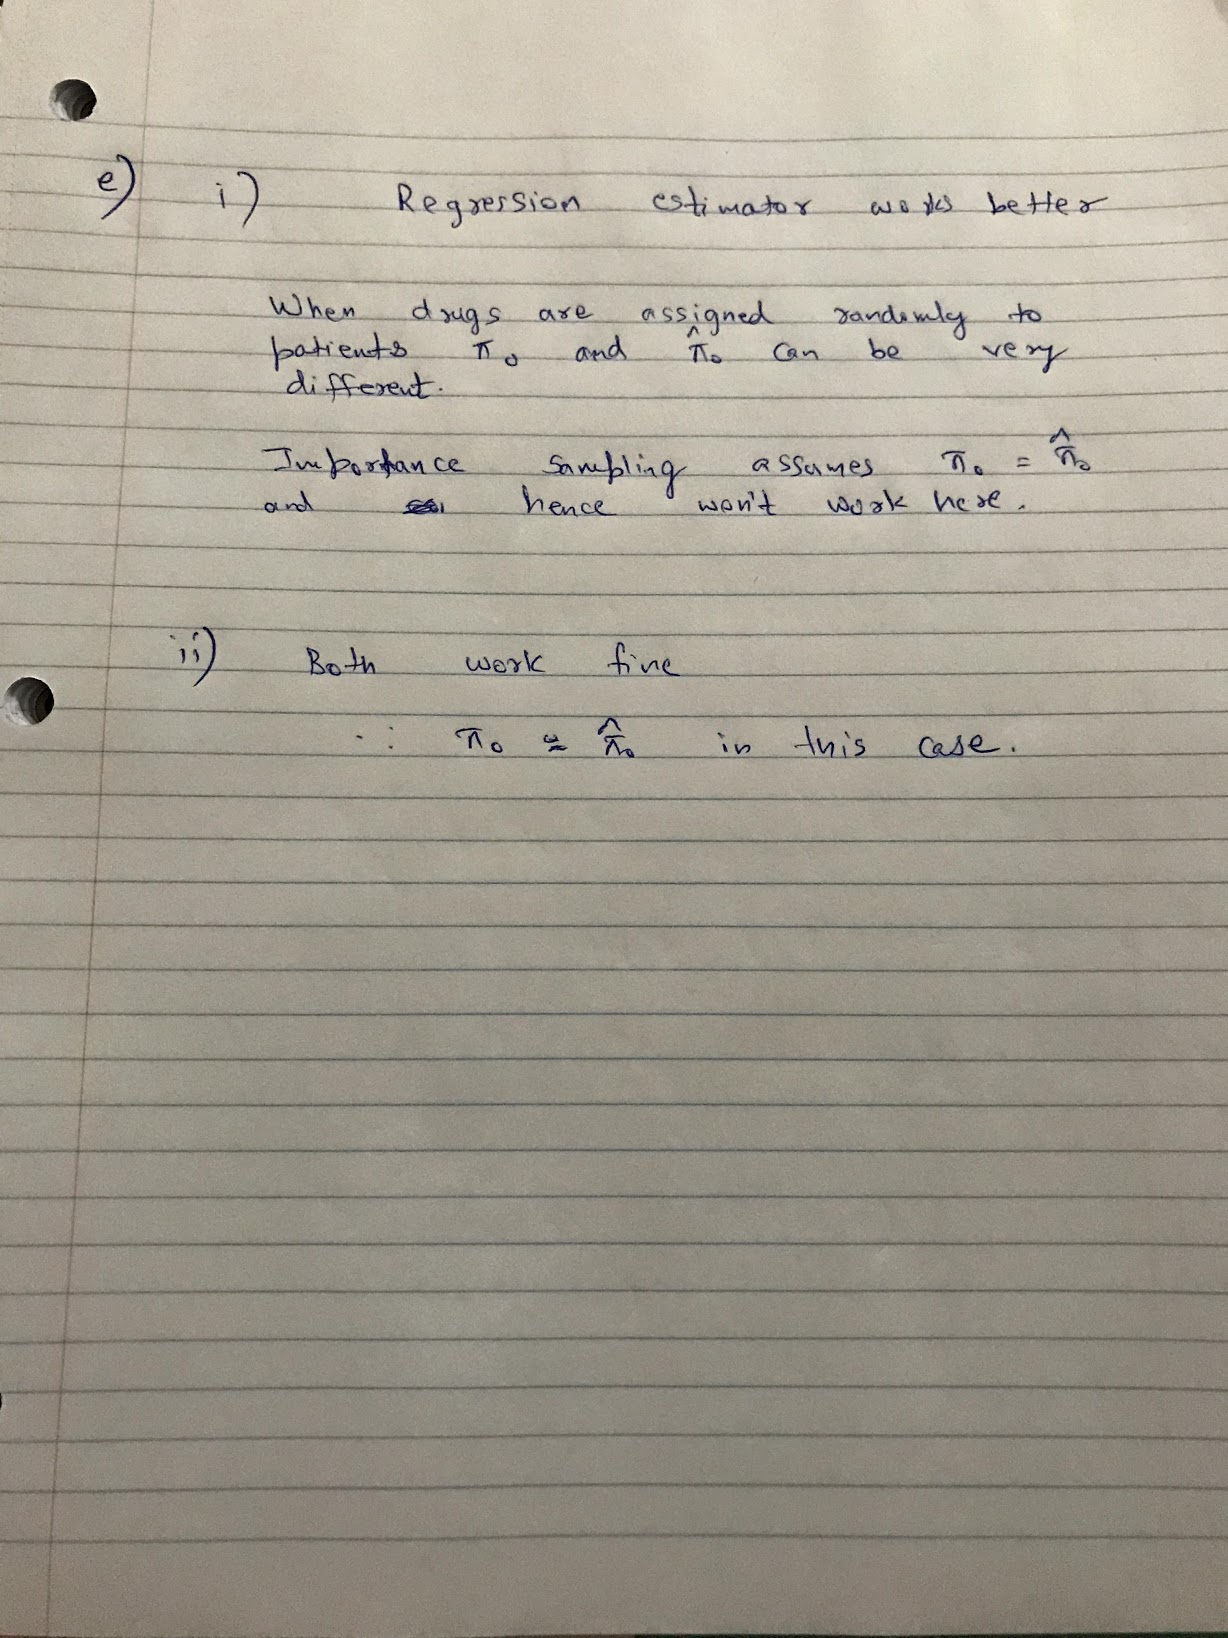 e) i) Regression estimator works better
When drugs are assigned randomly to
patients π₀ and π̂₀ can be very
different.
Importance sampling assumes π₀ = π̂₀
and hence won't work here.
ii) Both work fine
∵ π₀ ≃ π̂₀ in this case.